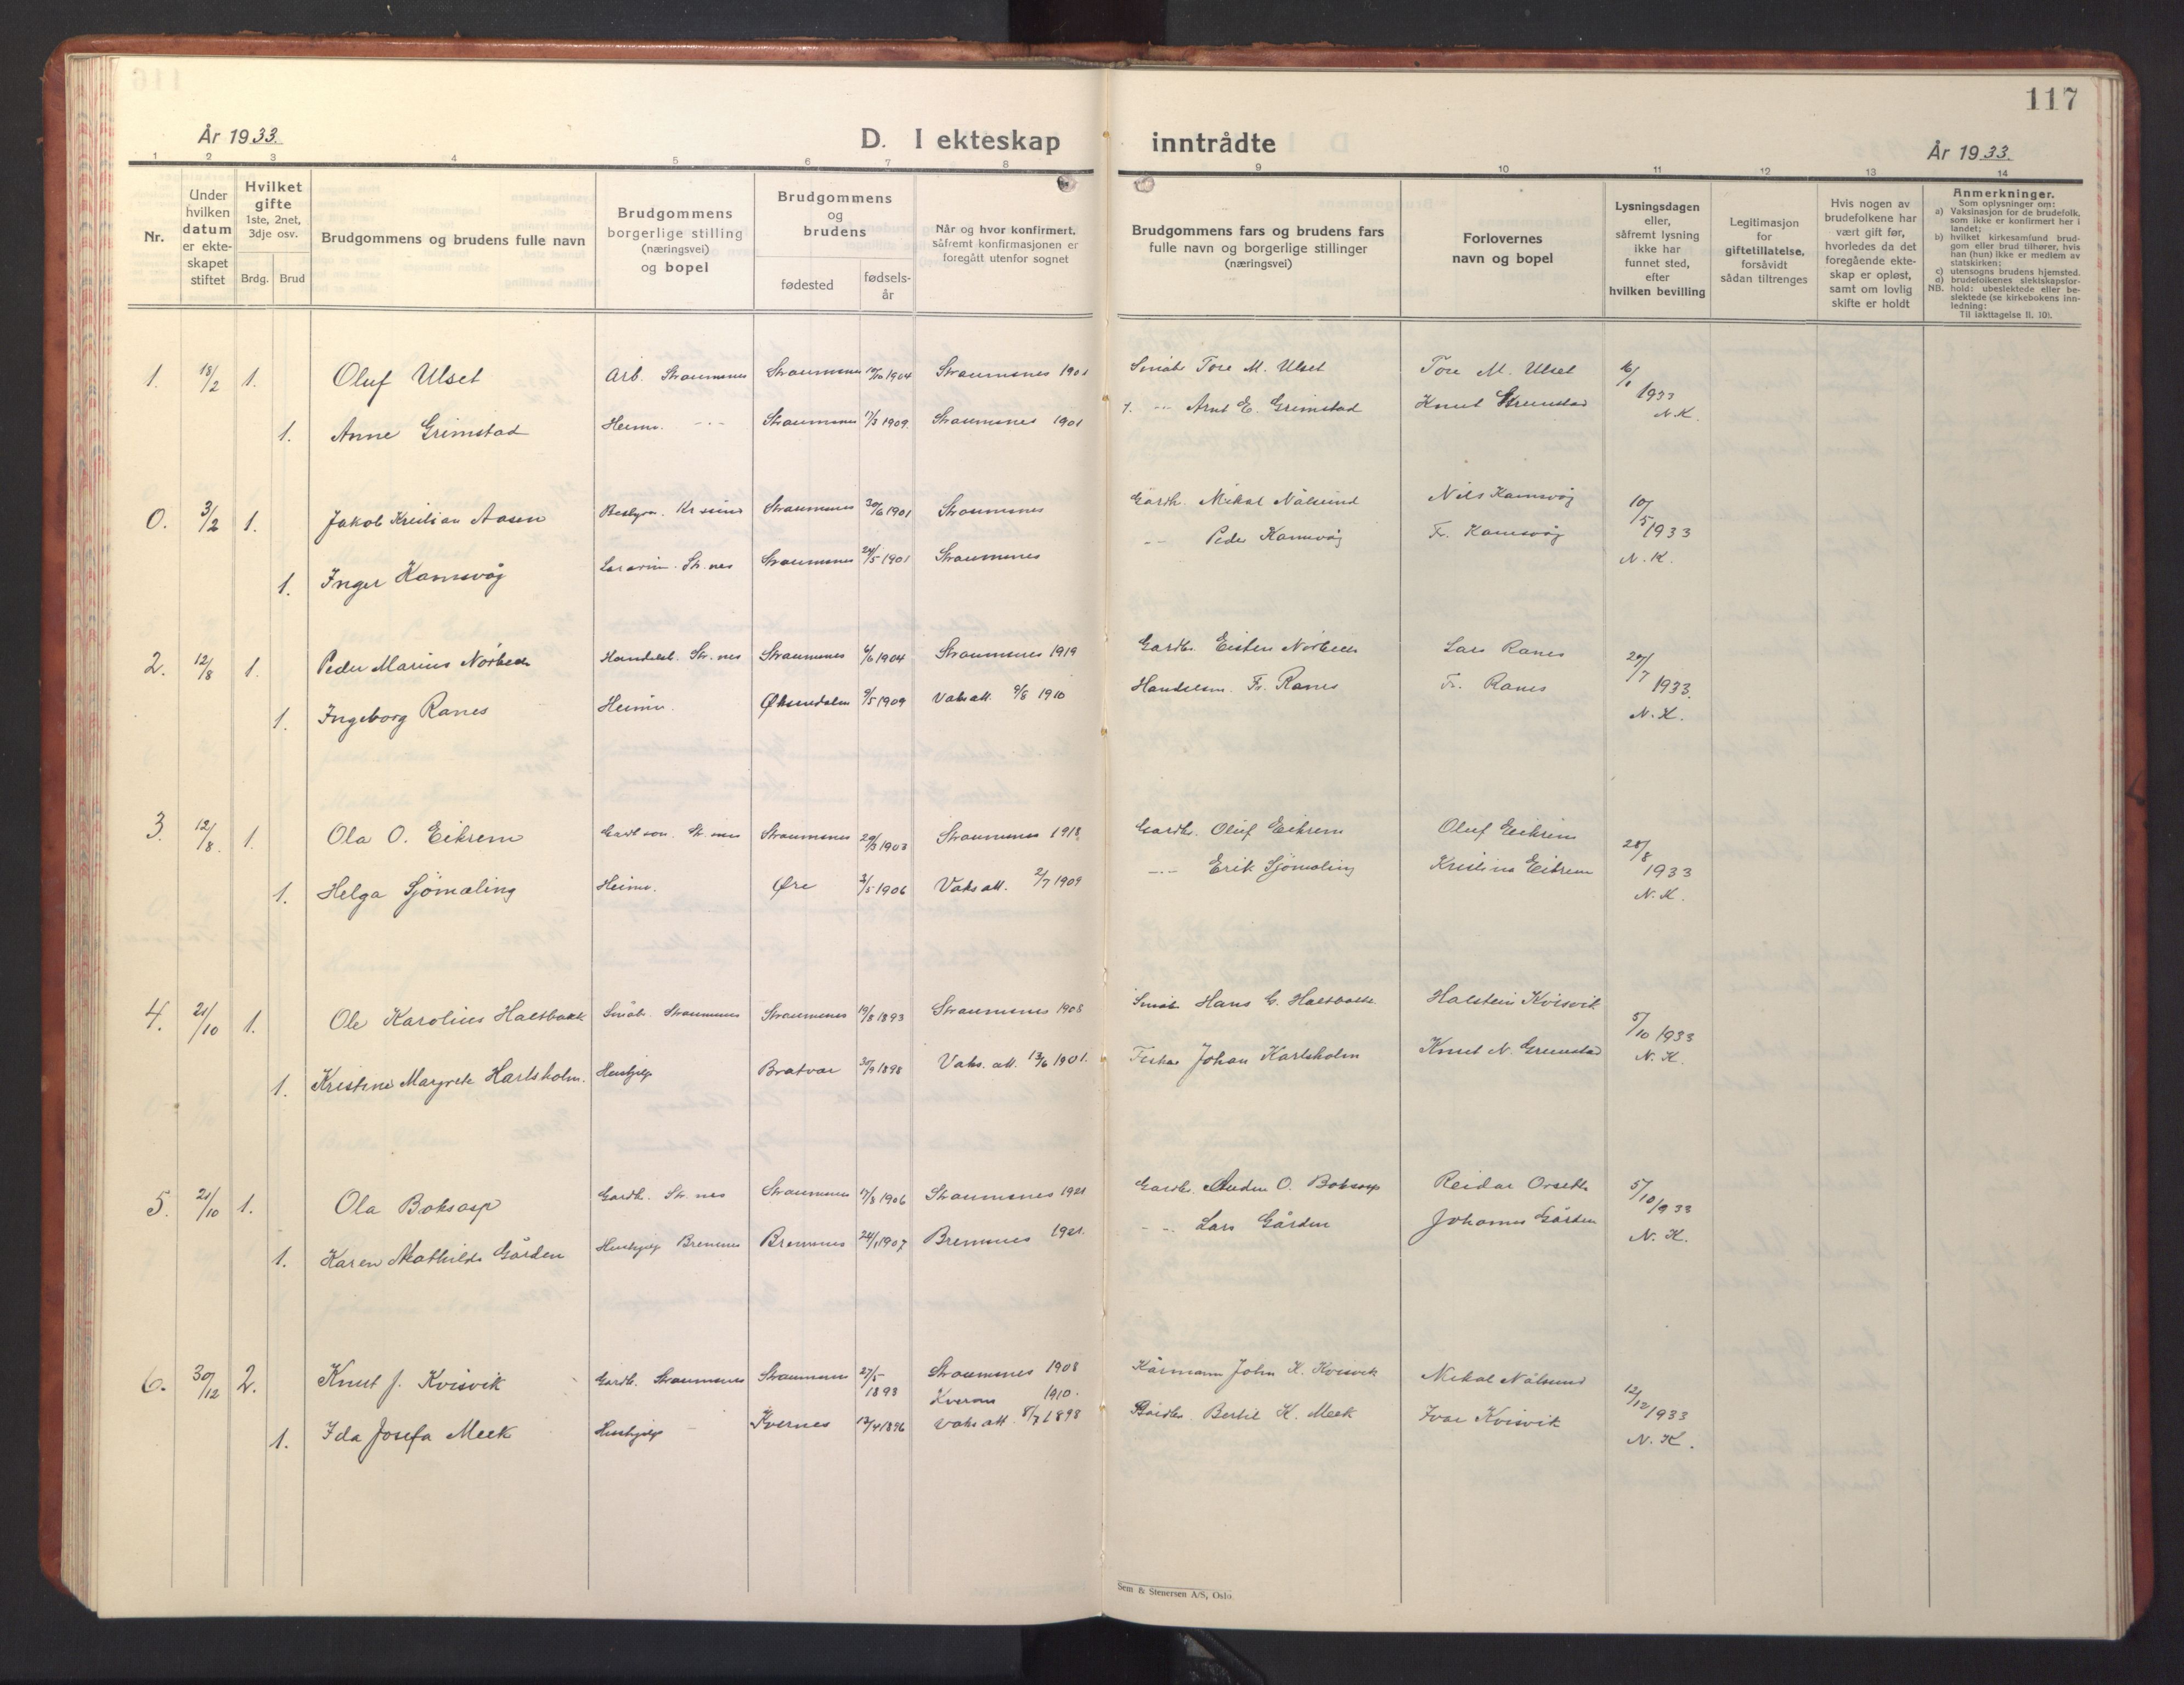 117
År 1933.
D. I ekteskap inntrådte
År 1933.
1 2 3 4 5 6 7 8 9 10 11 12 13 14
Nr.
Under hvilken datum er ekteskapet stiftet
Hvilket gifte 1ste, 2net, 3dje osv.
Brdg. Brud
Brudgommens og brudens fulle navn
Brudgommens borgerlige stilling (næringsvei) og bopel
Brudgommens og brudens
fødested
fødselsår
Når og hvor konfirmert, såfremt konfirmasjonen er foregått utenfor sognet
Brudgommens fars og brudens fars fulle navn og borgerlige stillinger (næringsvei)
Forlovernes navn og bopel
Lysningsdagen eller, såfremt lysning ikke har funnet sted, efter hvilken bevilling
Legitimasjon for giftetillatelse, forsåvidt sådan tiltrenges
Hvis nogen av brudefolkene har vært gift før, hvorledes da det foregående ekteskap er opløst, samt om lovlig skifte er holdt
Anmerkninger.
Som oplysninger om:
a) Vaksinasjon for de brudefolk, som ikke er konfirmert her i landet;
b) hvilket kirkesamfund brudgom eller brud tilhører, hvis han (hun) ikke er medlem av statskirken;
c) utensogns brudens hjemsted.
d) brudefolkenes slektskapsforhold: ubeslektede eller beslektede (se kirkebokens innledning:
NB.
Til iakttagelse II. 10).
1. 18/2 1. Oluf Ulset Arb. Straumsnes Straumsnes 1904 Straumsnes Småbr. Tore M. Ulset Tore M. Ulset 1933
1. Anne Grimstad Heimv. -"- Straumsnes 17/3 1909. Straumsnes -"- Arnt E. Grimstad Knut Grimstad N.K.
0. 3/2 1. Jakob Kristian Aasen Kr.sund Straumsnes 30/6 1901 Straumsnes Gardb. Mikal Nålsund Nils Kamsvåg 10/5 1933
1. Inger Kamsvåg Str.nes Straumsnes 24/5 1901 Straumsnes -"- Peder Kamsvåg Fr. Kamsvåg N.K.
2. 12/8 1. Peder Marius Nørbech Str.nes Straumsnes 6/6 1904 Straumsnes 1919 Gardb. Eisten Nørbech Lars Ranes 20/7 1933.
1. Ingeborg Ranes Heimv. Øksendalen 9/5 1909 Vaks att. 9/8 1910 Handelsm. Fr. Ranes Fr. Ranes N.K.
3. 12/8. 1. Ola O. Eikrem Gardb.son. Str.nes Straumsnes 29/3 1903 Straumsnes 1918. Gardb. Oluf Eikrem Oluf Eikrem 28/8 1933
1. Helga Sjömæling Heimv. Øre 3/5 1906 Vaks att. 2/7 1909 -"- Erik Sjömæling Kristina Eikrem N.K.
4. 21/10 1. Ole Karolius Halsbakk Småbr. Straumsnes Straumsnes 19/8 1893 Straumsnes 1908 Småbr. Hans G. Halsbakk Halstein Kvisvik 5/10 1933
1. Kristine Margrete Karlsholm. Hushjelp Bratvær 30/9 1898 Vaks. att. 13/6 1901. Fisker Johan Karlsholm Knut N. Grimstad N.K.
5. 21/10 1. Ola Boksasp Gardb. Str.nes Straumsnes 17/8 1906 Straumsnes 1921 Gardb. Anders O. Boksasp Reidar Orseth 5/10 1933
1. Karen Mathilde Gården Hushjelp Bremnes Bremnes 24/1 1907 Bremnes 1921. -"- Lars Gården Johannes Gården N.K.
6. 30/12 2. Knut J. Kvisvik Gardb. Straumsnes Straumsnes 27/5 1893 Straumsnes 1908 Kårmann John K. Kvisvik Mikal Nålsund 12/12 1933
1. Ida Josefa Meek Hushjelp Kvernes 13/4 1896 Kvernes 1910. Vaks att. 8/7 1898 Gardb. Bertil K. Meek Ivar Kvisvik N.K.
Sem & Stenersen A/S, Oslo.